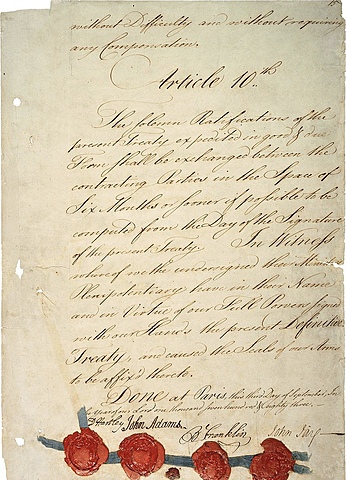 without Difficulty and without requiring
any Compensation.
Article 10th
The solemn Ratifications of the
present Treaty expedited in good & due
Form shall be exchanged between the
contracting Parties in the Space of
Six Months or sooner if possible to be
computed from the Day of the Signature
of the present Treaty. In Witness
whereof we the undersigned their Ministers
Plenipotentiary have in their Name
and in Virtue of our Full Powers signed
with our Hands the present Definitive
Treaty, and caused the Seals of our Arms
to be affix'd thereto.
Done at Paris, this third Day of September, In
the Year of our Lord one thousand seven hundred & eighty three.
D Hartley John Adams. B Franklin John Jay